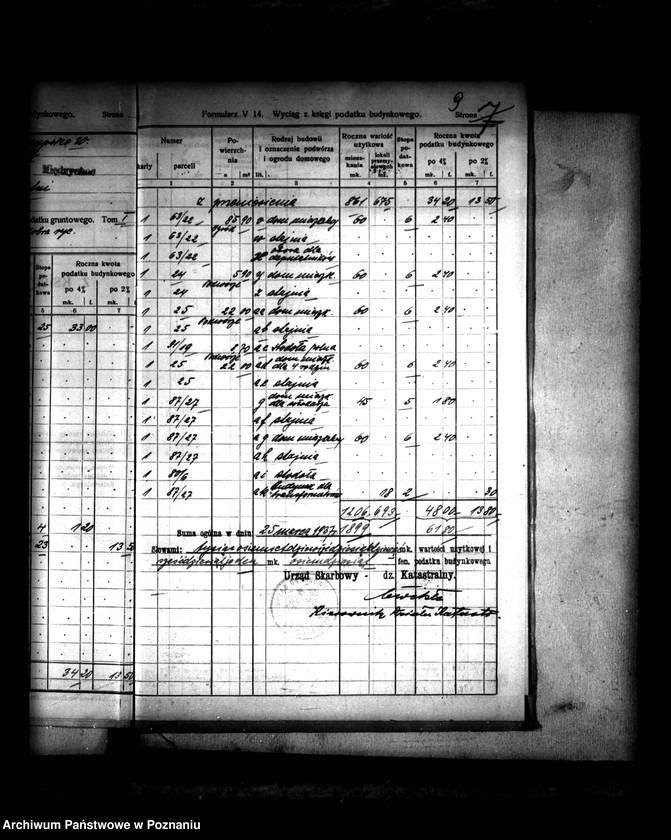 dynkowego. Strona
datku gruntowego. Tom I
Stopa podatkowa
Roczna kwota podatku budynkowego
po 4% po 2%
mk. f. mk. f.
5 6 7
25 33 00
4 1 20
23 13 50
34 20 13 50
9
Formularz V 14. Wyciąg z księgi podatku budynkowego. Strona 7
Numer
karty parceli
Powierzchnia
a m²
Rodzaj budowli i oznaczenie podwórza i ogrodu domowego
lit.
Roczna wartość użytkowa
mieszkania mk.
lokali przemysłowych mk.
Stopa podatkowa
Roczna kwota podatku budynkowego
po 4% po 2%
mk. f. mk. f.
1 2 3 4 5 6 7
Z przeniesienia 861 675 34 20 13 50
1 63/22 85 90 v dom mieszkalny 60 6 2 40
1 63/22 w stajnia
1 63/22
1 24 5 90 y dom mieszk. 60 6 2 40
podwórze
1 24 z stajnia
1 25 22 00 aa dom mieszk. 60 6 2 40
podwórze
1 25 ab stajnia
1 91/19 8 70 ac stodoła polna
podwórze
1 25 22 00 ad dom mieszk. dla 4 rodzin 60 6 2 40
1 25 ae stajnia
1 87/27 dom mieszk. 45 5 1 80
1 87/27 af stajnia
1 87/27 ag dom mieszkalny 60 6 2 40
1 87/27 ah stajnia
1 80/6 ai stodoła
1 87/27 ak budynek dla transformatorów 18 2 30
1206 693 48 00 13 80
Suma ogólna w dniu 25 marca 1937 1899 61 80
Słowami: mk. wartości użytkowej i
mk. fen. podatku budynkowego
Urząd Skarbowy - dz. Katastralny.
Kierownik Działu Katastr.
Archiwum Państwowe w Poznaniu